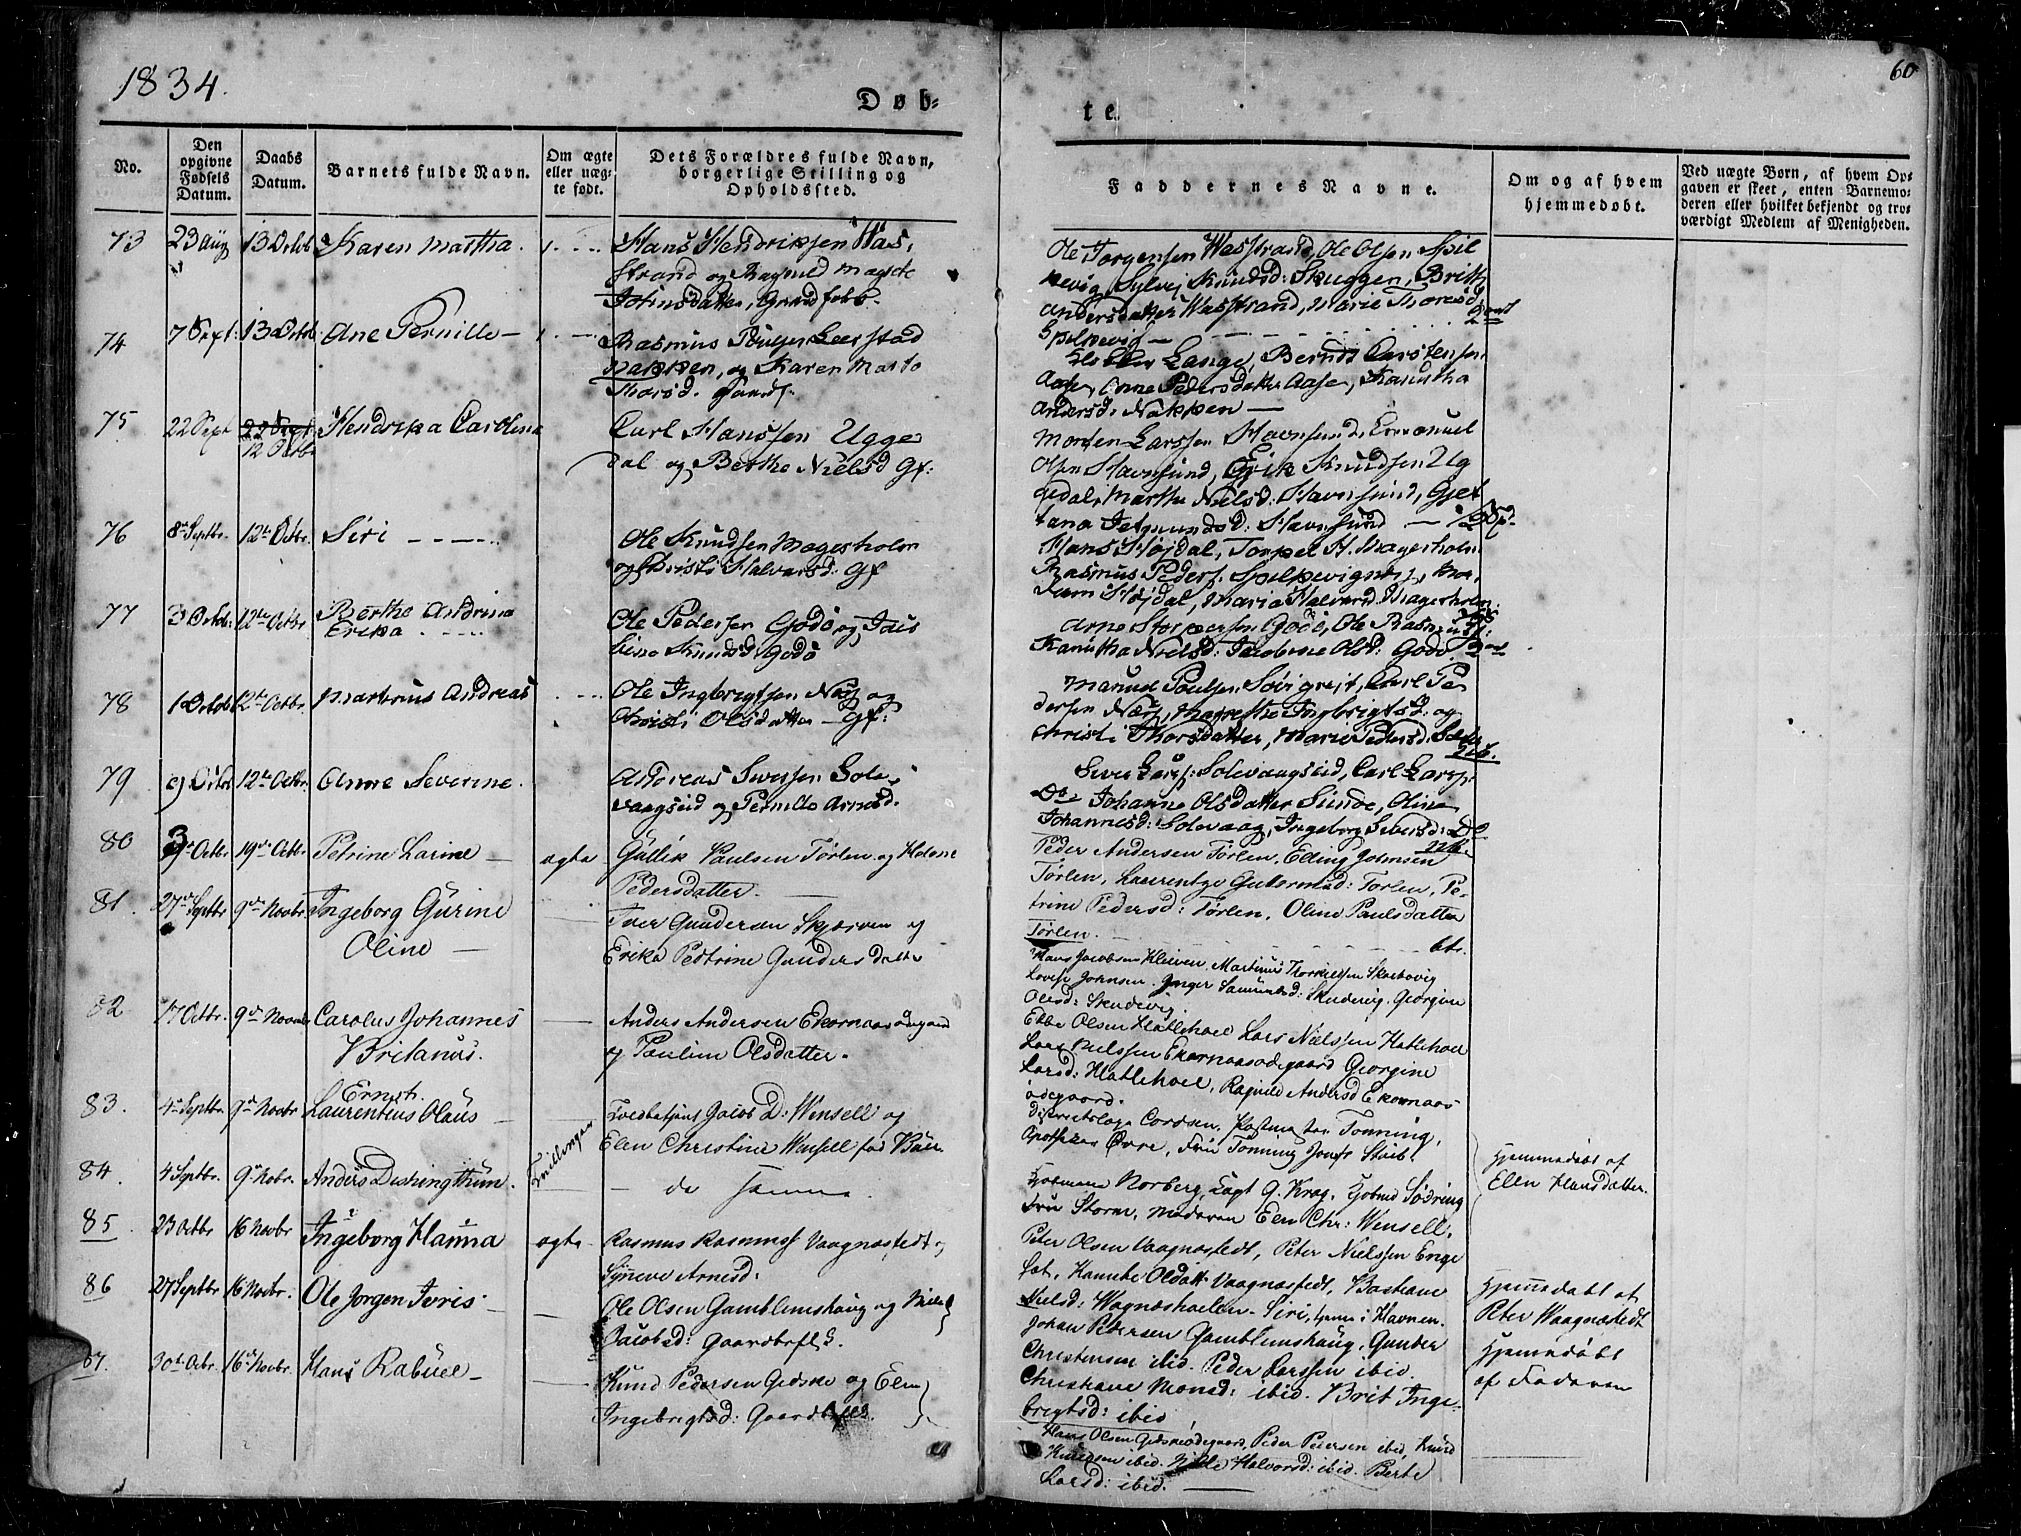 1834.
60
Døb-
te.
No.
Den opgivne Fødsels Datum.
Daabs Datum.
Barnets fulde Navn.
Om ægte eller uægte født.
Dets Forældres fulde Navn, borgerlige Stilling og Opholdssted.
Faddernes Navne.
Om og af hvem hjemmedøbt.
Ved uægte Børn, af hvem Opgaven er skeet, enten Barnemoderen eller hvilket bekjendt og troværdigt Medlem af Menigheden.
73 23 Aug 13 Octob Karen Martha.
Hans Hendriksen Was-
strand og Magnild Magrete
Johnsdatter, Grundfolk.
Ole Jorgensen Wasstrand, Ole Olsen Spil
pevig, Sylvej Knudsd: Skuggen, Brith
Andersdatter Wasstrand, Marie Thoresd
Spilpevig —
74 7 Sept: 13 Octob: Ane Pernille —
Rasmus Poulsen Leerstad
Nakken, og Karen Marta
Lange, Berndt Carstensen
Aase, Anne Pedersdatter Aase, Kanutha
Andersd: Nakken —
75 22 Sept 12 Octbr Hendrika Carolina
Carl Hanssen Ugge
dal og Berthe Nielsd Gf:
Morten Larssen Havnsund, Emanuel
Olsen Havnsund, Erik Knudsen Ug
gedal, Marthe Nielsd: Havnsund, Gjet
76 8de Septbr. 12te Octbr. Siri - - - - -
Ole Knudsen Magerholm
og Christi Halvorsd: Gf
Hans Højdal, Torpel H. Magerholm
Rasmus Peders. Spilpevignes, Ma-
dam Højdal, Maria Halvorsd. Magerholm
77 3 Octob: 12te Octbr Berthe Andrina
Erika
Ole Pedersen Godø og Jais
bine Knudsd: Godø
Arne Storkersen Godø, Ole Rasmuss:
Kanutha Nielsd: Jacobine Olsd: Godø
78 1 Octob 12te Octbr. Martinus Andreas
Ole Ingbrigtsen Næss og
Christi Olsdatter — Gf:
Carl Pe
dersen Næss, Marethe Ingbrigtsd: og
Christi Thorsdatter, Marie Pedersd
79 9 Octbr 12te Octbr. Anne Severine.
Andreas Swersen Sole-
vaagseid og Pernille Arnesd.
Swer Larss: Solevaagseid, Carl Larss:
Do Johanne Olsdatter Sunde, Oline
Johannesd: Solevaag, Ingeborg Seversd: Do
80 3de Octbr 19de Octbr. Petrine Larine — ægte
Gullik Paulsen Tørlen og Helene
Pedersdatter.
Peder Andersen Tørlen, Elling Johnsen
Tørlen, Laurentze Guttormsd: Tørlen, Pe-
trine Pedersd: Tørlen, Oline Paulsdatter
Tørlen.
81. 27de Septbr 9de Novbr Ingeborg Gurine
Oline —
Iver Gundersen Skjærven og
Erika Petrine Gundersdatter
Hans Jacobsen Kleven, Martinus Thorkilsen Skarbøvig
Lovise Johnsen, Inger Samuelsd: Skudevig. Georgine
Olsd: Skudevig.
82 17 Octbr. 9de Novbr Carolus Johannes
Britanus.
Anders Andersen Ekornaasødegaard
og Pauline Olsdatter.
Ebbe Olsen Hatlehoel Lars Nielssen Hatlehoel
Lars Nielssen Ekornaasødegaard Georgine
Larsd: Hatlehoel, Ragnild Andersd Ekornaas-
ødegaard.
83. 4de Septbr. 9de Novbr Ernst
Laurentius Olaus —
Tvillinger
Jacob D: Wensell og
Elen Christine Wensell fød Buse
Districtslæge Cordsen, Postmester Tønning,
Apotheker Øvre, Fru Tønning Jomfr Stub.
84. 4 Septbr. 9de Nobr. Anders Dishingthun.
— de samme.
Kjøbmand Norberg, Capt G. Krag, Kjøbmd Sødring
Fru Storm, Madamen Elen Chr: Wensell.
Hjemmedøbt af
Ellen Hansdatter.
85. 23 Octbr 16 Novbr Ingeborg Hanna ægte
Rasmus Rasmuss Vaagnæstedt og
Synneve Arnesd:
Peter Olsen Vaagnæstedt, Peter Nielssen Enge
sæt, Kanutte Oldatt. Vaagnæstedt, Bastiane
Nielsd: Wagnæshoelen. Siri, tjener i Havnen.
86 27 Septbr 16 Novbr. Ole Jørgen Joris —
Ole Olsen Gamblemshaug og Nille
Jacobsd: Gaardbrflk.
Johan Petersen Gamblemshaug, Gunder
Christensen ibid. Peder Larssen ibid.
Christiane Monsd: ibid. Brit Inge-
brigtsd: ibid
Hjemmedøbt af
Peter Waagnæstedt
87. 30te Ocbr. 16de Novbr. Hans Rabuel —
Knud Pedersen Gedske og Elen
Ingebrigtsd: Gaardbrflk.
Hans Olsen Gedskeødegaard, Peder Petersen ibid, Knud
Knudsen ibid. Nille Halvorsd: ibid. Berte
Larsd: ibid.
Hjemmedøbt
af Faderen